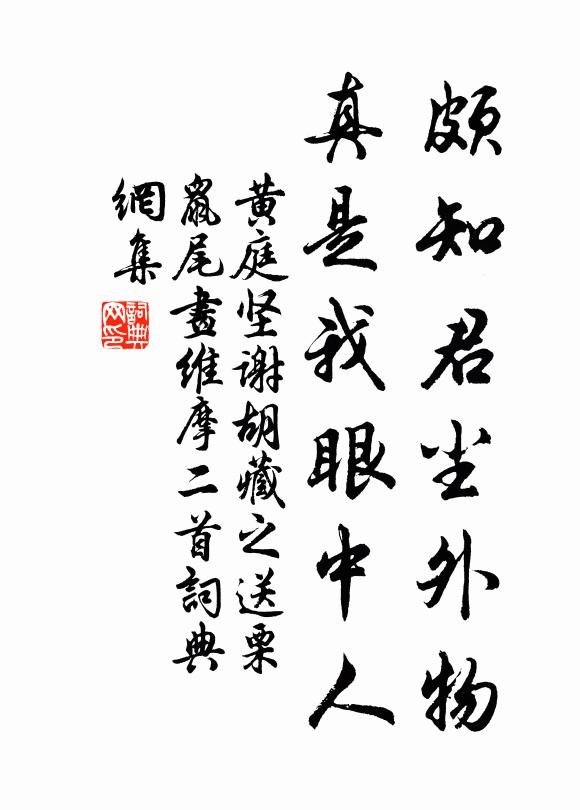 頗知君尘外物
真是我眼中人
黄庭坚谢胡藏之送栗
鼠尾畫維摩二首詞典
網集
詞典
网印